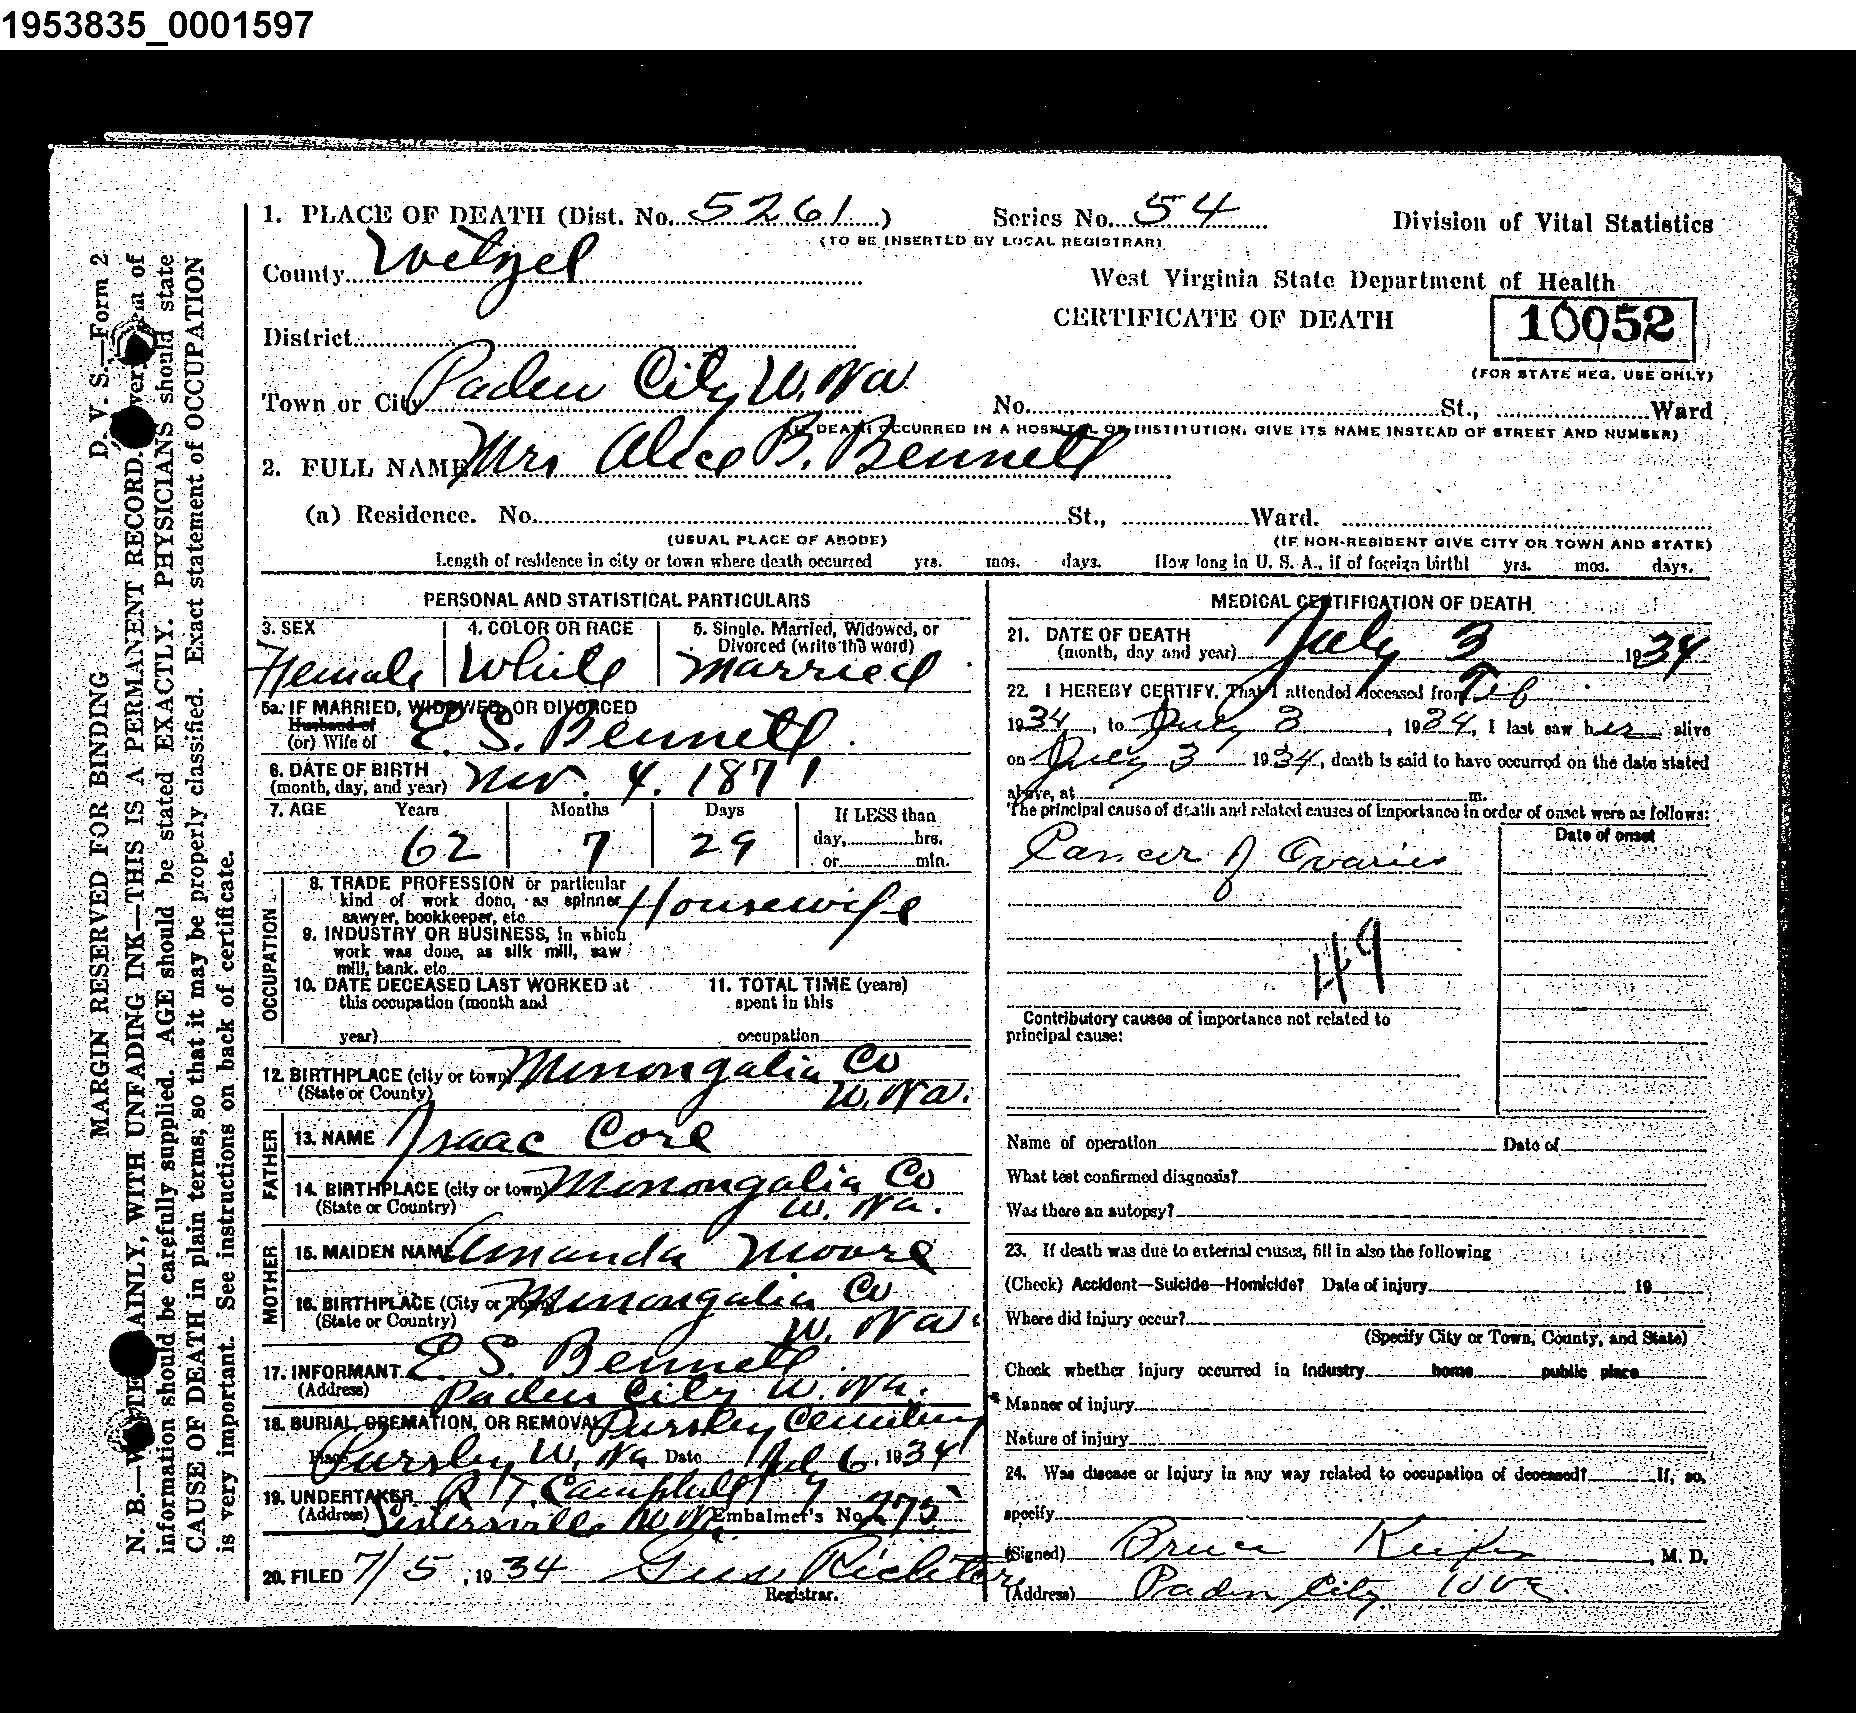 1953835_0001597
1. PLACE OF DEATH (Dist. No. 5261) Series No. 54 Division of Vital Statistics
(TO BE INSERTED BY LOCAL REGISTRAR)
County Wetzel
West Virginia State Department of Health
CERTIFICATE OF DEATH 10052
District
(FOR STATE REG. USE ONLY)
Town or City Paden City W. Va No. St., Ward
(IF DEATH OCCURRED IN A HOSPITAL OR INSTITUTION, GIVE ITS NAME INSTEAD OF STREET AND NUMBER)
2. FULL NAME Mrs Alice B. Bennett
(a) Residence. No. St., Ward.
(USUAL PLACE OF ABODE) (IF NON-RESIDENT GIVE CITY OR TOWN AND STATE)
Length of residence in city or town where death occurred yrs. mos. days. How long in U. S. A., if of foreign birth? yrs. mos. days.
PERSONAL AND STATISTICAL PARTICULARS
3. SEX 4. COLOR OR RACE 5. Single, Married, Widowed, or
Divorced (write the word)
Female White Married
5a. IF MARRIED, WIDOWED, OR DIVORCED
Husband of
(or) Wife of E. S. Bennett
6. DATE OF BIRTH
(month, day, and year) Nov. 4. 1871
7. AGE Years Months Days If LESS than
62 7 29 day, hrs.
or min.
OCCUPATION
8. TRADE PROFESSION or particular
kind of work done, as spinner
sawyer, bookkeeper, etc. Housewife
9. INDUSTRY OR BUSINESS, in which
work was done, as silk mill, saw
mill, bank, etc.
10. DATE DECEASED LAST WORKED at 11. TOTAL TIME (years)
this occupation (month and spent in this
year) occupation
12. BIRTHPLACE (city or town) Monongalia Co
(State or County) W. Va.
FATHER
13. NAME Isaac Core
14. BIRTHPLACE (city or town) Monongalia Co
(State or Country) W. Va.
MOTHER
15. MAIDEN NAME Amanda Moore
16. BIRTHPLACE (City or Town) Monongalia Co
(State or Country) W. Va.
17. INFORMANT E S. Bennett
(Address) Paden City W. Va.
18. BURIAL, CREMATION, OR REMOVAL Pursley Cemetery
Place Pursley W. Va Date July 6, 1934
19. UNDERTAKER R. T. Campbell
(Address) Sistersville W. Va. Embalmer's No. 275
20. FILED 7/5, 1934
Registrar.
MEDICAL CERTIFICATION OF DEATH
21. DATE OF DEATH
(month, day and year) July 3 1934
22. I HEREBY CERTIFY, That I attended deceased from Feb
1934, to July 3, 1934, I last saw her alive
on July 3 1934, death is said to have occurred on the date stated
above, at m.
The principal cause of death and related causes of importance in order of onset were as follows:
Date of onset
Cancer of Ovaries
49
Contributory causes of importance not related to
principal cause:
Name of operation Date of
What test confirmed diagnosis?
Was there an autopsy?
23. If death was due to external causes, fill in also the following
(Check) Accident—Suicide—Homicide? Date of injury 19
Where did injury occur?
(Specify City or Town, County, and State)
Check whether injury occurred in industry home public place
Manner of injury
Nature of injury
24. Was disease or injury in any way related to occupation of deceased? If, so,
specify
(Signed) Bruce M. D.
(Address) Paden City W Va.
D. V. S.—Form 2
MARGIN RESERVED FOR BINDING
N. B.—WRITE PLAINLY, WITH UNFADING INK—THIS IS A PERMANENT RECORD. Every item of
information should be carefully supplied. AGE should be stated EXACTLY. PHYSICIANS should state
CAUSE OF DEATH in plain terms; so that it may be properly classified. Exact statement of OCCUPATION
is very important. See instructions on back of certificate.